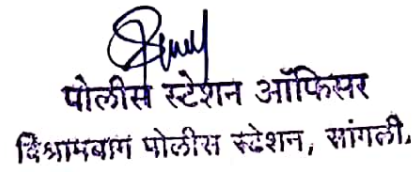 पोलीस स्टेशन ऑफिसर
विश्रामबाग पोलीस स्टेशन, सांगली.